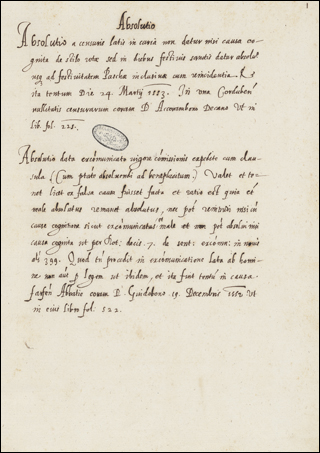 1
Absolutio
Absolutio a censuris latis in curia non datur nisi causa co-
gnita de stilo rotæ sed in hubus festivis
neq ad festivitatem Paschæ inclusive cum reincidentia
ita tentum Die 24. Martij In una Corduben
nullitatis censurarum coram D. Decano Ut in
lib. fol. 221.
Absolutio data excōmunicato vigore cōmissionis expedite cum clau-
sula (Cum ptāte absolvendi ad beneplacitum) Valet et te-
net licet ex falsa causa fuisset facta et ratio est quia et
male absolutus remanet absolutus, nec pōt nisi in
causæ cognitione sicut excōmunicatus male et non pōt absolvi nisi
causa cognita ut per Rot: decis. 7. de sent: excōmu: in novis
als 399. Quod procedit in excōmunicatione lata ab homi-
ne non aut p legem ut ibidem, et ita fuit tentū in causa
Abbatie coram D. Guidobono 19. Decembris Ut
in eius libro fol. 522.